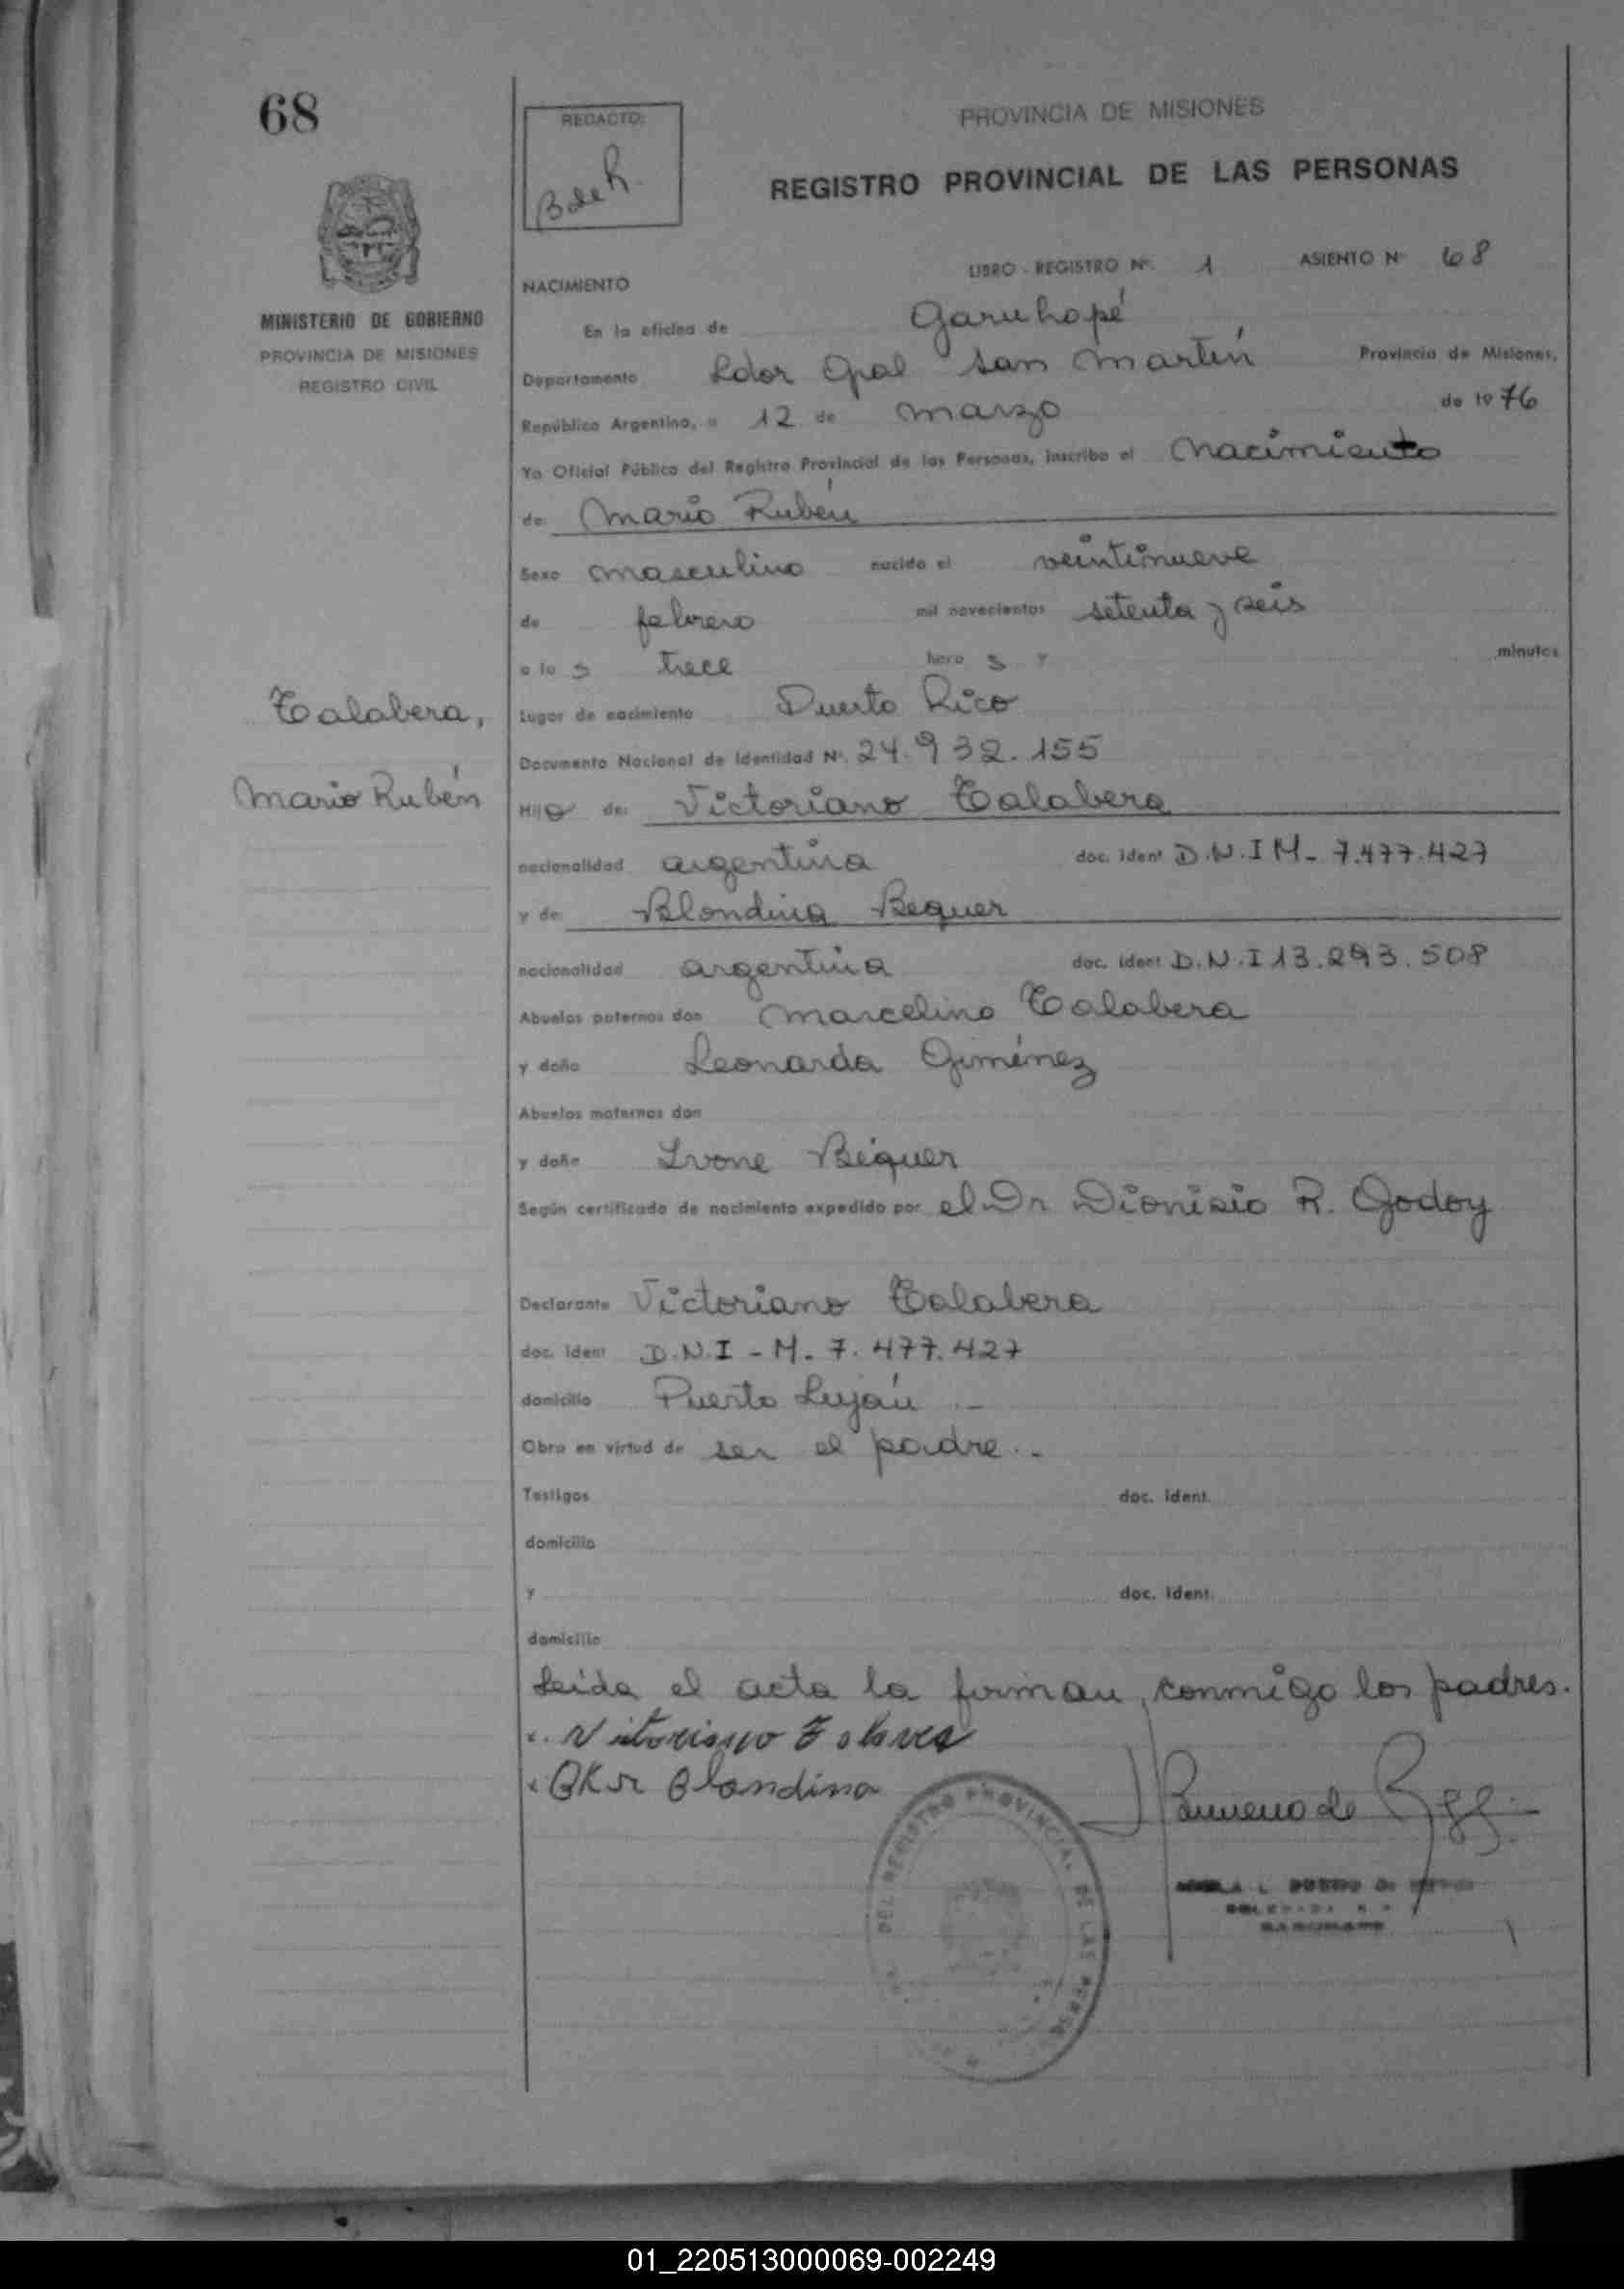 68
REDACTO:
B de R.
PROVINCIA DE MISIONES
REGISTRO PROVINCIAL DE LAS PERSONAS
MINISTERIO DE GOBIERNO
PROVINCIA DE MISIONES
REGISTRO CIVIL
LIBRO - REGISTRO Nº. 1 ASIENTO Nº 68
NACIMIENTO
En la oficina de Garuhapé
Departamento Ldor Gral San Martín Provincia de Misiones,
República Argentina, a 12 de marzo de 1976
Yo Oficial Público del Registro Provincial de las Personas, inscribo el Nacimiento
de: Mario Rubén
Sexo masculino nacido el veintinueve
de febrero mil novecientos setenta y seis
a la s trece hora s y minutos
Talabera,
Mario Rubén
Lugar de nacimiento Puerto Rico
Documento Nacional de Identidad Nº. 24.932.155
Hijo de: Victoriano Talabera
nacionalidad argentina doc. ident D.N.I M- 7.477.427
y de: Blondina Bequer
nacionalidad argentina doc. ident D.N.I 13.293.508
Abuelos paternos don Marcelino Talabera
y doña Leonarda Giménez
Abuelos maternos don
y doña Ivone Béquer
Según certificado de nacimiento expedido por el Dr Dionisio R. Godoy
Declarante Victoriano Talabera
doc. ident D.N.I - M. 7.477.427
domicilio Puerto Luján .-
Obra en virtud de ser el padre.-
Testigos doc. ident.
domicilio
y doc. ident.
domicilio
Leida el acta la firman, conmigo los padres.
Blandina
DEL REGISTRO PROVINCIAL DE LAS PERSO
01_220513000069-002249